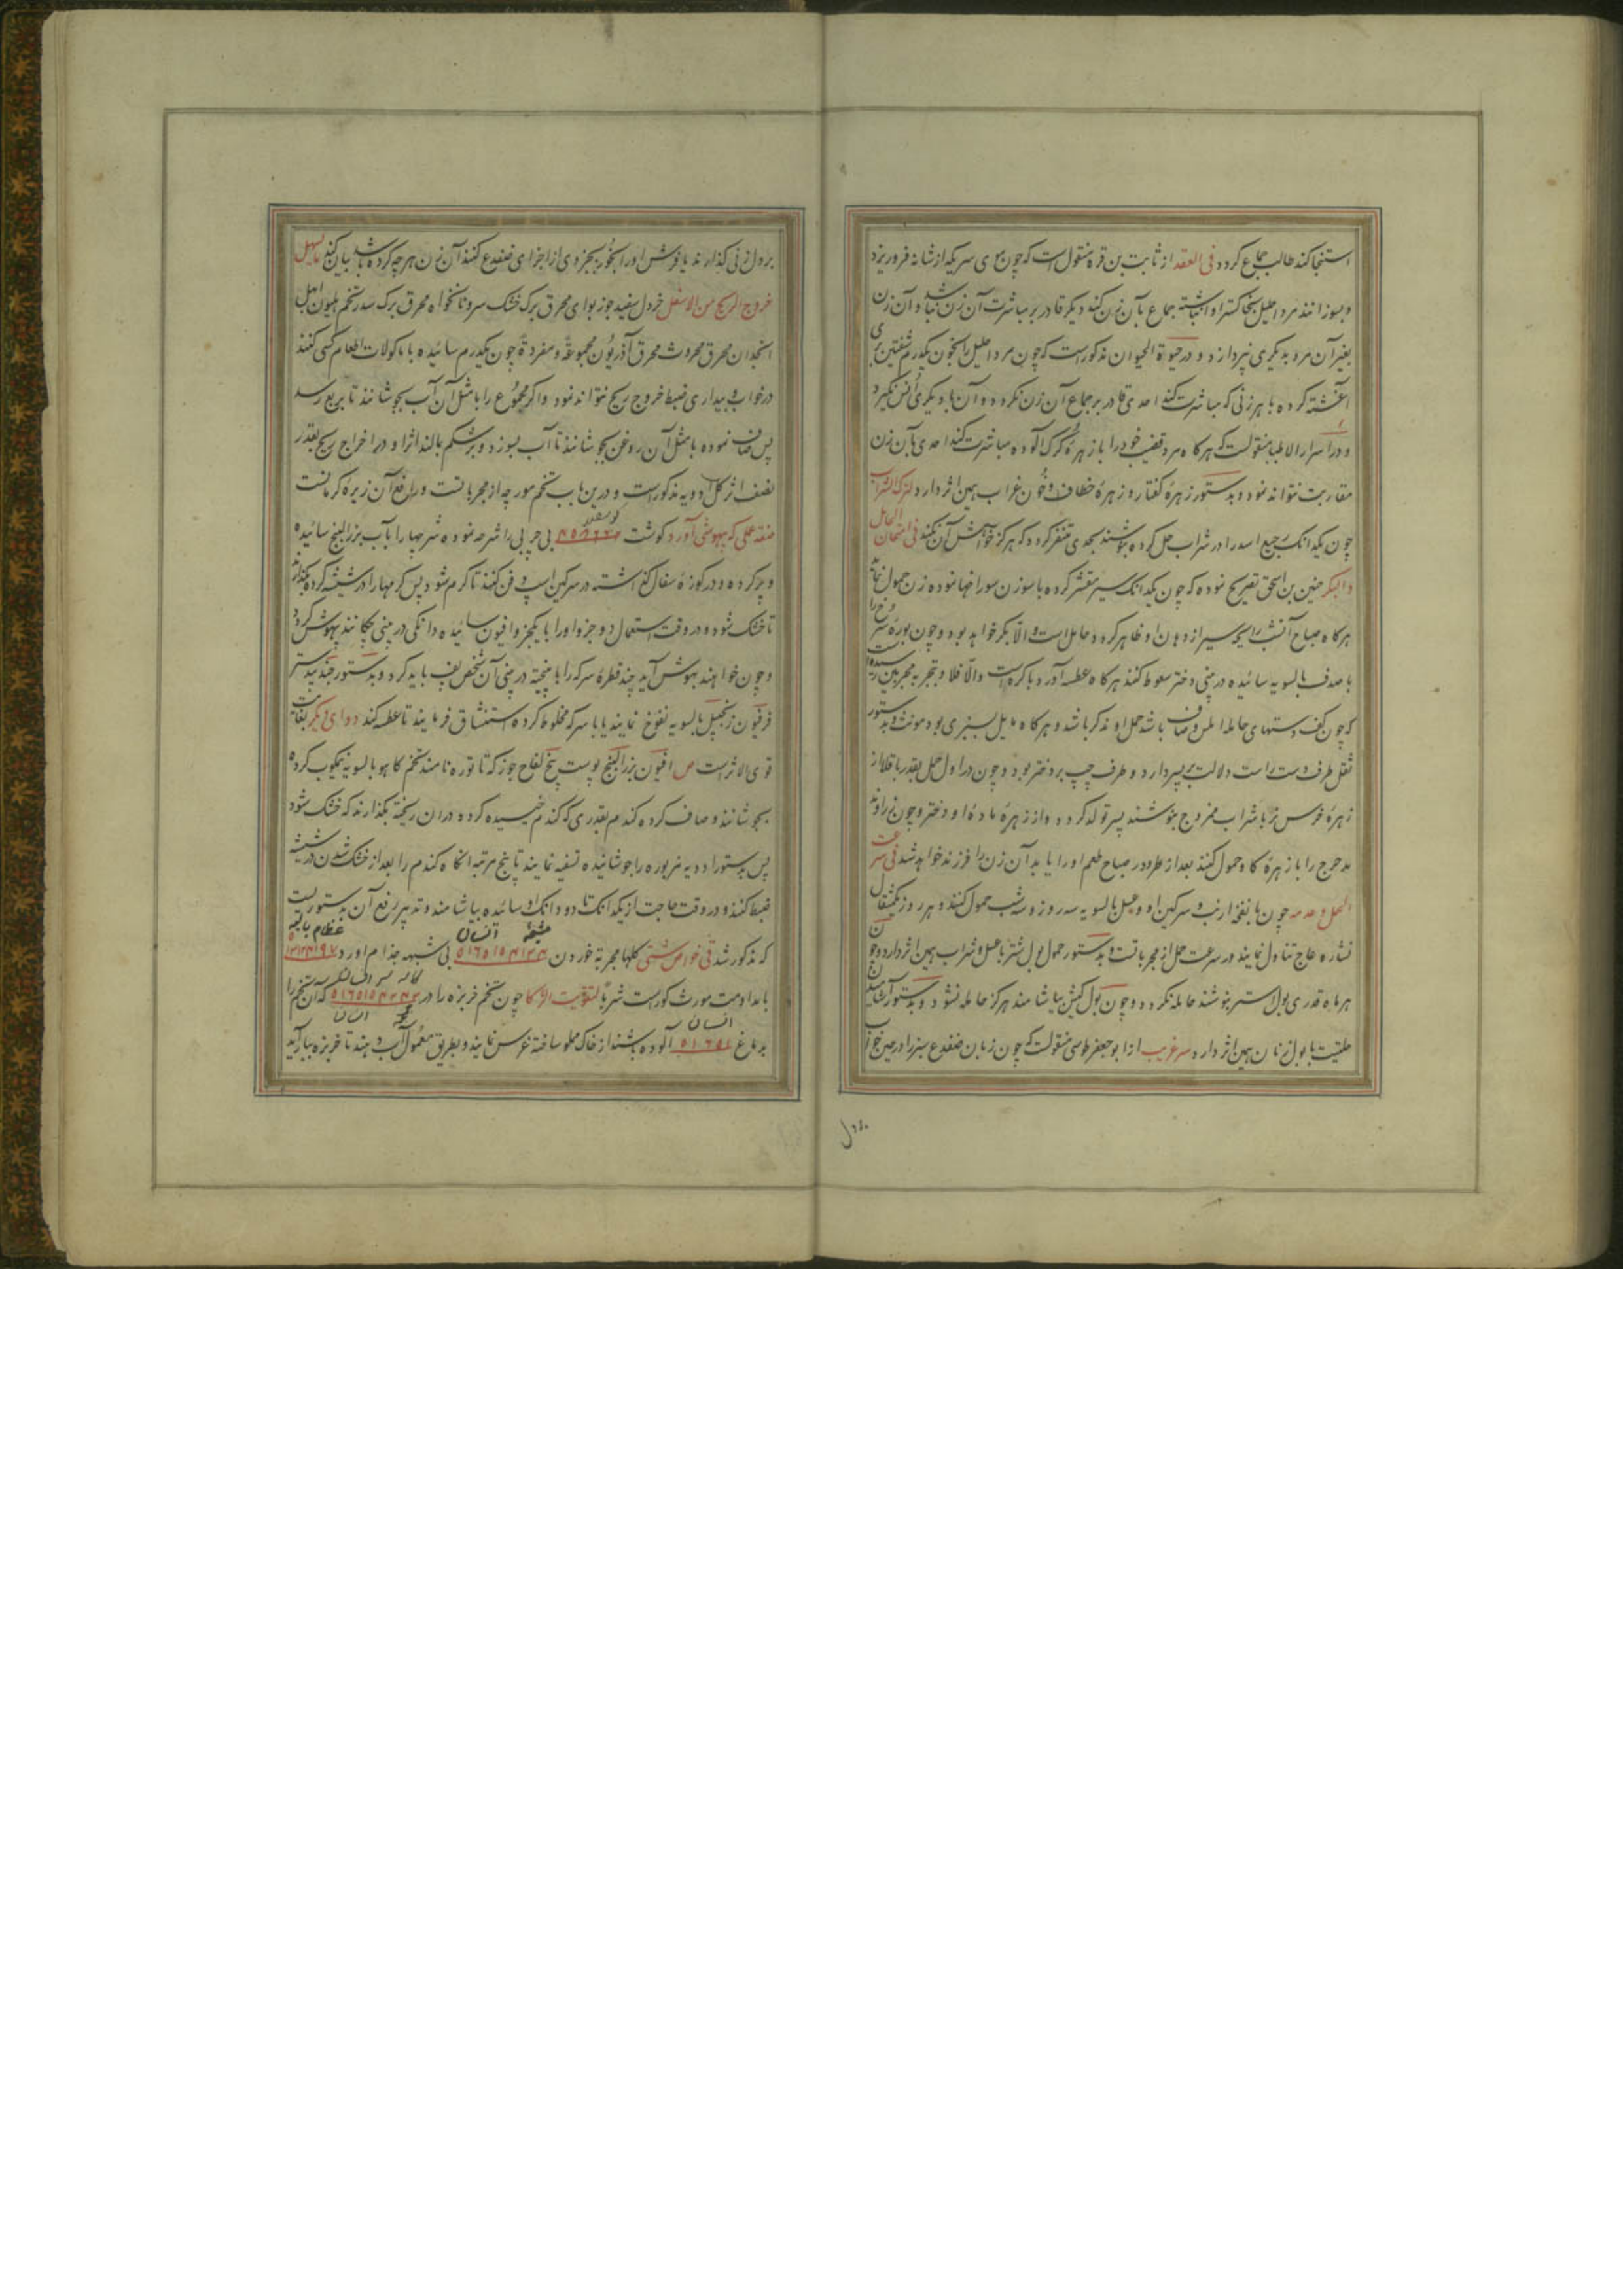 استنجا کند طالب جماع کردد فی العقد از ثابت بن قره منقول است که چون موی سر یکه از شانه فرو ریزد
و بسوزانند مرد احلیل بخاکستر او انباشته جماع بآن زن کند دیکر قادر بر مباشرت آن زن نباشد و آن زن
بغیر آن مرد بدیکری نپردازد و در حیوة الحیوان مذکور است که چون مرد احلیل را بخون یکدرم شفنین بری
آغشته کرده با هر زنی که مباشرت کند احدی قادر بر جماع آن زن نکردد و آن با دیکری انس نکیرد
و در اسرار الاطبا منقولست که هر کاه مرد قضیب خود را با زهرهٔ کرک آلوده مباشرت کند احدی بآن زن
مقاربت نتواند نمود و بدستور زهرهٔ کفتار و زهرهٔ خطاف و خون غراب همین اثر دارد لترک الشراب
چون یکدانک رجیع اسد را در شراب حل کرده بنوشند بحدی متنفر کردد که هرکز خواهش آن نکند فی امتحان الحامل
والبکر حنین بن اسحق تصریح نموده که چون یکدانک سیر مقشر کرده با سوزن سوراخها نموده زن حمول نماید
هرکاه صباح آنشب رایحه سیر از دهان او ظاهر کردد حامل است والّا بکر خواهد بود و چون بورهٔ سرخ را
با صدف بالسویه سائیده در بینی دختر سعوط کنند هرکاه عطسه آورد باکره است والّا فلا و تجربه مجربین رسیده است
که چون کف دستهای حامله املس و صاف باشد حمل او مذکر باشد و هرکاه مایل بسبزی بود مونث و بدستور
ثقل طرف دست راست دلالت بر پسر دارد و طرف چپ بر دختر بود و چون در اول حمل بقدر باقلا از
زهرهٔ خرس نر با شراب ممزوج بنوشند پسر تولد کردد و از زهرهٔ مادهٔ او دختر و چون زراوند
مدحرج را با زهرهٔ کاو حمول کنند بعد از طهر و در صباح طعم او را یابد آن زن را فرزند خواهد شد فی سرعت
الحمل و عدمه چون با نفخهٔ ارنب و سرکین او و عسل بالسویه سه روز و سه شب حمول کنند و هر روز یکمثقال
نشاره عاج تناول نمایند در سرعت حمل از مجرباتست و بدستور حمول بول شتر با عسل و شراب همین اثر دارد و چون زن
هر ماه قدری بول استر بنوشند حامله نکردد و چون بول کبش بیاشامند هرکز حامله نشود و بدستور آشامیدن
حلتیت با بول زنان همین اثر دارد سر غریب از ابو جعفر طوسی منقولست که چون زبان ضفدع سبز را در حین خواب
بر دل
بر دل زنی کذارند یا فرش او را بخور بجزوی از اجزای ضفدع کنند آن زن هر چه کرده باشد بیان کند تسهیل
خروج الریح من الاسفل خردل سفید جوزبوای محرق برک خشک سرو نانخواه محرق برک سدر تخم هلیون ابهل
انجدان محرق محروث محرق آذریون مجموعةً و مفردةً چون یکدرم سائیده با ماکولات اطعام کسی کنند
در خواب و بیداری ضبط خروج ریح نتواند نمود و اکر مجموع را با مثل آن آب بجوشانند تا بربع رسد
پس صاف نموده با مثل آن روغن بجوشانند تا آب بسوزد و بر شکم بالند اثر او در اخراج ریح بقدر
نصف اثر کل ادویه مذکور است و درین باب تخم مورچه از مجرباتست و رافع آن زیره کرمانست
صنفه علی که بیهوشی آورد کوشت بی چربی را شرحه نموده شرحها را بآب بزرالبنج سائیده
و پر کرده و در کوزهٔ سفال کذاشته در سرکین اسپ دفن کنند تا کرم شود پس کرمها را در شیشه کرده بکذارند
تا خشک شود و در وقت استعمال دو جزو او را با یکجزو افیون سائیده دانکی در بینی چکانند بیهوش کردد
و چون خواهند بهوش آید چند قطره سرکه را با پنبه در بینی آن شخص پف باید کرد و بدستور جندبیدستر
فرفیون زنجبیل بالسویه نفوخ نمایند یا با سرکه مخلوط کرده استنشاق فرمایند تا عطسه کند دوای دیکر بغایت
قوی الاثر است ص افیون بزرالبنج پوست بیخ لفاح جوز که تاتوره نامند تخم کاهو بالسویه نیمکوب کرده
بجوشانند و صاف کرده کندم بقدری که کندم خیسیده کردد در آن ریخته بکذارند که خشک شود
پس بدستور ادویه مزبوره را جوشانیده تسقیه نمایند تا پنج مرتبه انکاه کندم را بعد از خشک شدن در شیشه
ضبط کنند و در وقت حاجت از یکدانک تا دو دانک او سائیده بیاشامند و تدبیر رفع آن بدستوریست
که مذکور شد فی خواص شتی کلها مجربة خوردن بی شبهه جذام آورد
با مداومت مورث کوریست شرباً لتقویت الذکا چون تخم خربزه را در که آن تخم را
بدماغ آلوده باشند از خاک مملو ساخته غرس نمایند و بطریق معمول آب دهند تا خربزه ببار آید